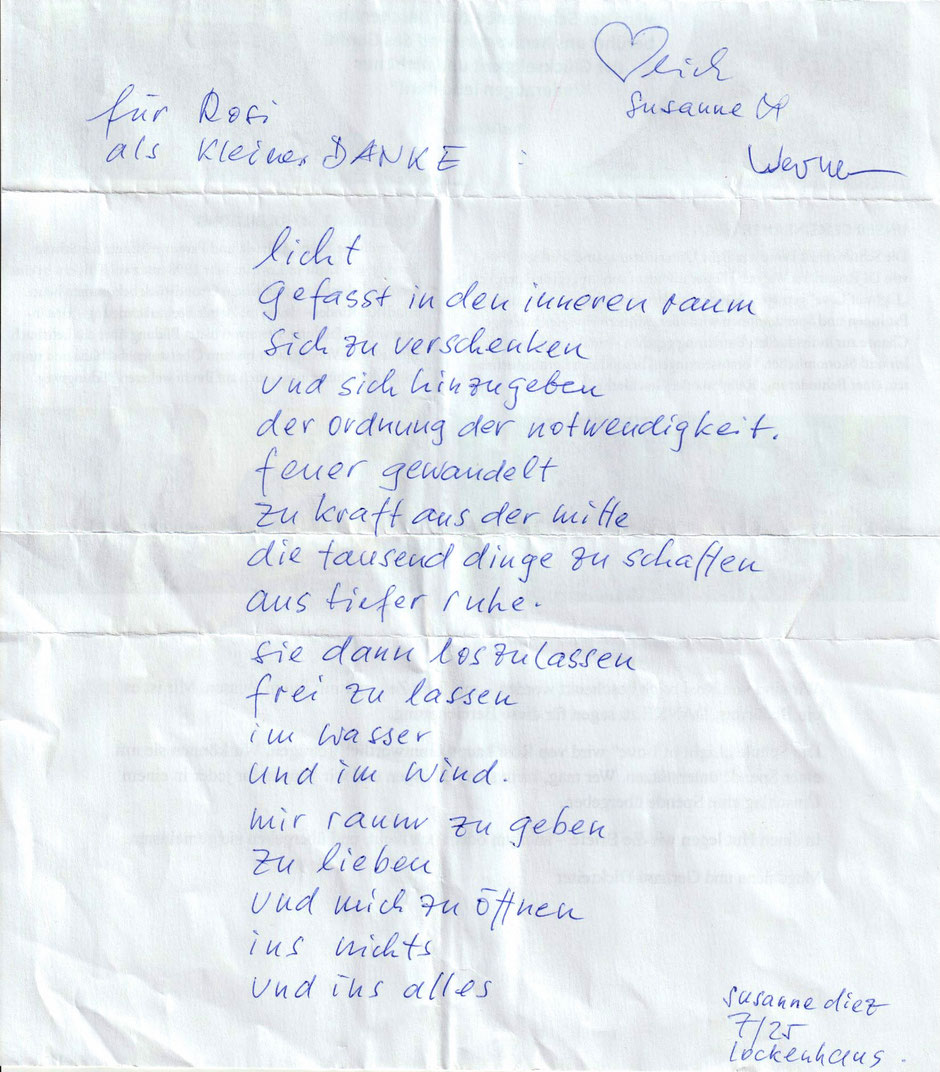 für Rosi
als kleines DANKE :
♡lich
Susanne &
Werner
licht
gefasst in den inneren raum
sich zu verschenken
und sich hinzugeben
der ordnung der notwendigkeit.
feuer gewandelt
zu kraft aus der mitte
die tausend dinge zu schaffen
aus tiefer ruhe.
sie dann loszulassen
frei zu lassen
im wasser
und im wind.
mir raum zu geben
zu lieben
und mich zu öffnen
ins nichts
und ins alles
susanne diez
7/25
lockenhaus.